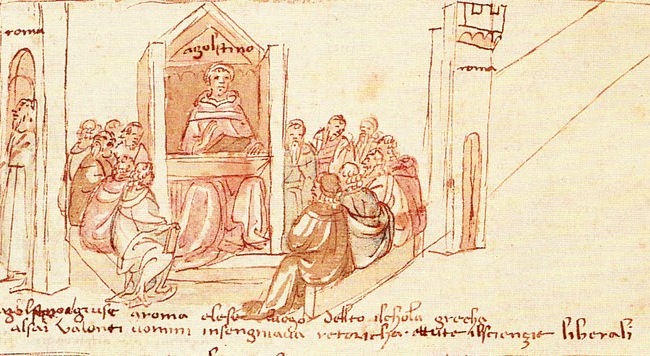 roma
agostino
roma
giuse a roma elese luogo detto ischola grecha
assai valenti uomini insengnava retoricha ettute lescienzie liberali